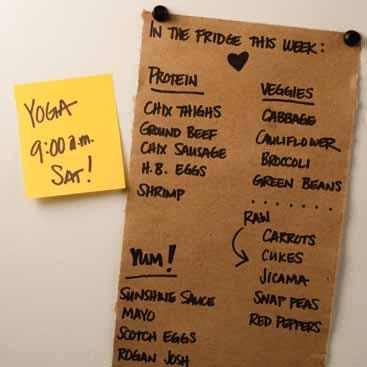 YOGA
9:00 a.m.
SAT!
IN THE FRIDGE THIS WEEK:
PROTEIN
CHIX THIGHS
GROUND BEEF
CHIX SAUSAGE
H.B. EGGS
SHRIMP
VEGGIES
CABBAGE
CAULIFLOWER
BROCCOLI
GREEN BEANS
RAW
CARROTS
CUKES
JICAMA
SNAP PEAS
RED PEPPERS
YUM!
SUNSHINE SAUCE
MAYO
SCOTCH EGGS
ROGAN JOSH